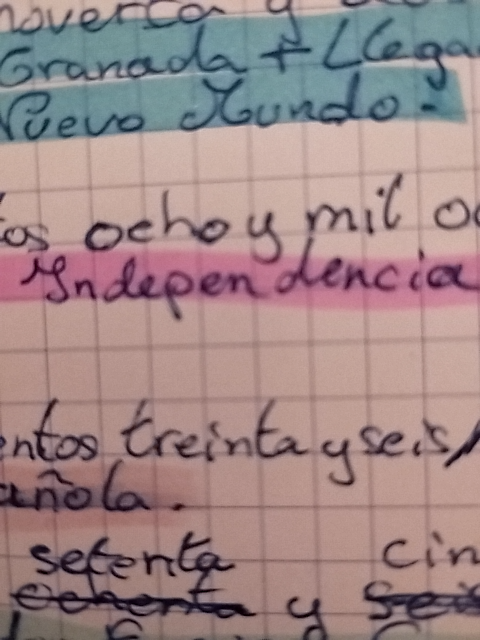 Granada + Llega
Nuevo Mundo.
tos ocho y mil oc
Independencia
entos treinta y seis/
añola.
setenta cin
ochenta y seis